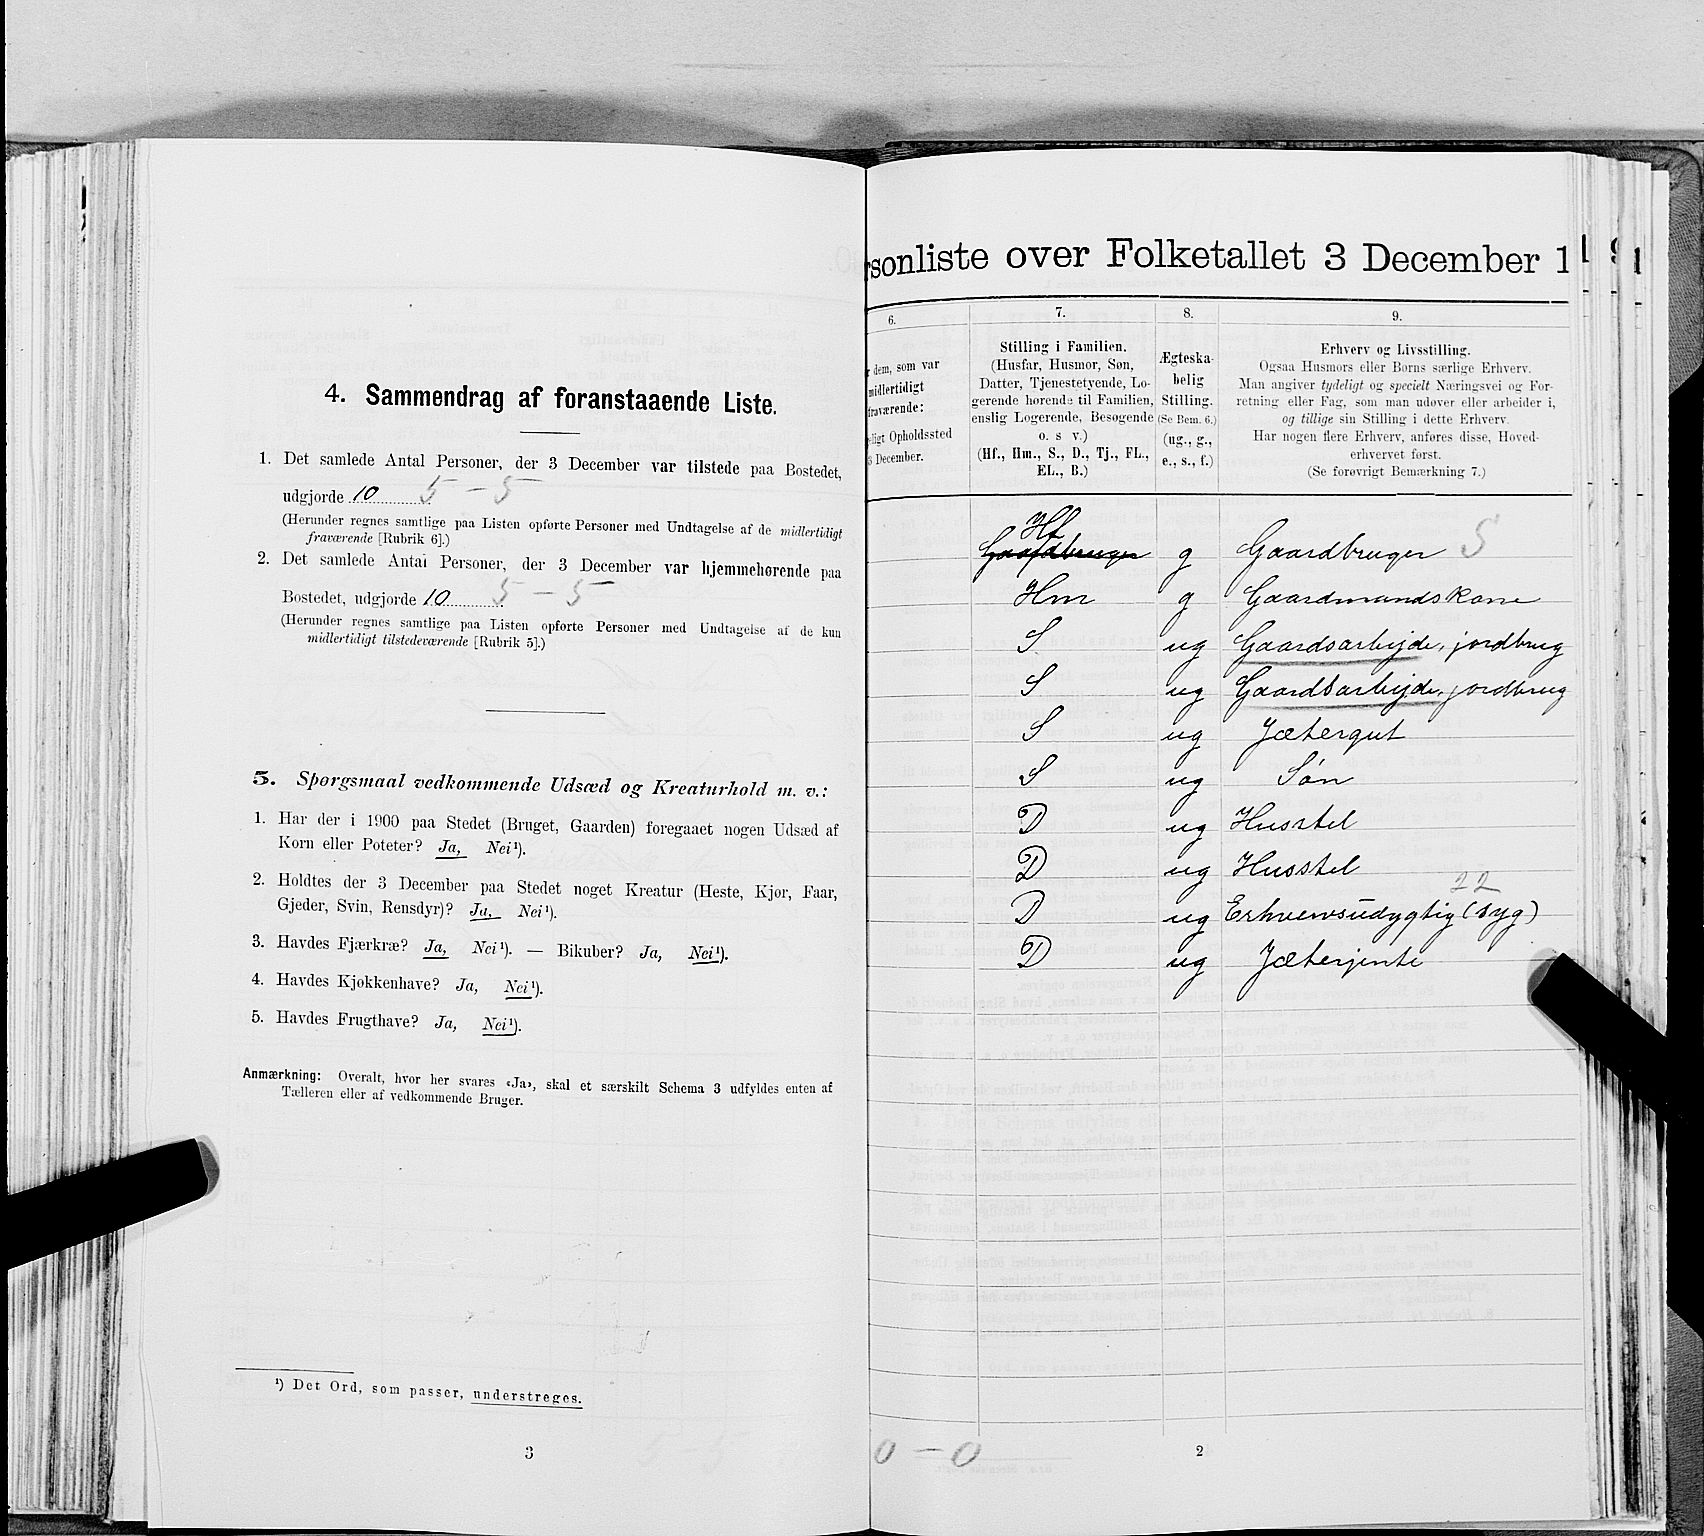 4. Sammendrag af foranstaaende Liste.
1. Det samlede Antal Personer, der 3 December var tilstede paa Bostedet,
udgjorde 10 5 - 5
(Herunder regnes samtlige paa Listen opførte Personer med Undtagelse af de midlertidigt
fraværende [Rubrik 6].)
2. Det samlede Antal Personer, der 3 December var hjemmehørende paa
Bostedet, udgjorde 10 5 - 5
(Herunder regnes samtlige paa Listen opførte Personer med Undtagelse af de kun
midlertidigt tilstedeværende [Rubrik 5].)
5. Spørgsmaal vedkommende Udsæd og Kreaturhold m. v.:
1. Har der i 1900 paa Stedet (Bruget, Gaarden) foregaaet nogen Udsæd af
Korn eller Poteter? Ja, Nei¹).
2. Holdtes der 3 December paa Stedet noget Kreatur (Heste, Kjør, Faar,
Gjeder, Svin, Rensdyr)? Ja, Nei¹).
3. Havdes Fjærkræ? Ja, Nei¹). — Bikuber? Ja, Nei¹).
4. Havdes Kjøkkenhave? Ja, Nei¹).
5. Havdes Frugthave? Ja, Nei¹).
Anmærkning: Overalt, hvor her svares «Ja», skal et særskilt Schema 3 udfyldes enten af
Tælleren eller af vedkommende Bruger.
¹) Det Ord, som passer, understreges.
3
rsonliste over Folketallet 3 December 1
6.
r dem, som var
midlertidigt
fraværende:
eligt Opholdssted
3 December.
7.
Stilling i Familien.
(Husfar, Husmor, Søn,
Datter, Tjenestetyende, Lo-
gerende hørende til Familien,
enslig Logerende, Besøgende
o. s v.)
(Hf., Hm., S., D., Tj., FL.,
EL., B.)
8.
Ægteska-
belig
Stilling.
(Se Bem. 6.)
(ug., g.,
e., s., f.)
9.
Erhverv og Livsstilling.
Ogsaa Husmors eller Børns særlige Erhverv.
Man angiver tydeligt og specielt Næringsvei og For-
retning eller Fag, som man udøver eller arbeider i,
og tillige sin Stilling i dette Erhverv.
Har nogen flere Erhverv, anføres disse, Hoved-
erhvervet først.
(Se forøvrigt Bemærkning 7.)
Hf
Gaardbruger g Gaardbruger S
Hm g Gaardmandskone
S ug Gaardsarbejde, jordbrug
S ug Gaardsarbejde, jordbrug
S ug Jætergut
S ug Søn
D ug Husstel
D ug Husstel
22
D ug Erhvervsudygtig (syg)
D ug Jæterjente
0 - 0
2